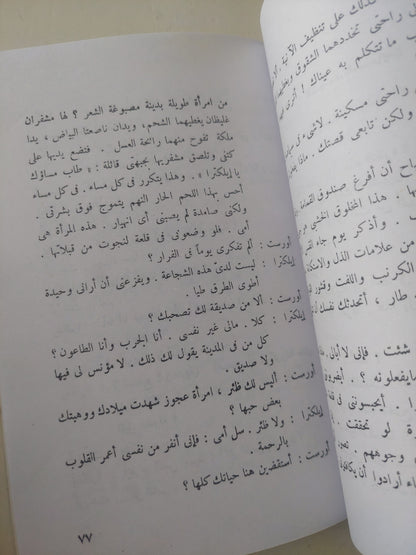 من امرأة طويلة بدينة مصبوغة الشعر ؟ لها مشفران
غليظان يغطيهما الشحم، ويدان ناصعتا البياض، يدا
ملكة تفوح منهما رائحة العسل . فتضع يديها على
كتفى وتلصق مشفريها بجبهتى قائلة : « طاب مساؤك
يا إيلكترا » . وهذا يتكرر فى كل مساء . فى كل مساء
أحس بهذا اللحم الحار النهم يتموج فوق بشرتى .
ولكنى صامدة لم يصبنى أى انهيار . هذه المرأة هى
أمى . فلو وضعونى فى قلعة لنجوت من قبلاتها .
أورست : ألم تفكرى يوماً فى الفرار ؟
إيلكترا : ليست لدى هذه الشجاعة . ويفزعنى أن أرانى وحيدة
أطوى الطرق طيا .
أورست : ألا من صديقة لك تصحبك ؟
إيلكترا : كلا . مالى غير نفسى . أنا الجرب وأنا الطاعون ؟
كل من فى المدينة يقول لك ذلك . لا مؤنس لى فيها
ولا صديق .
أورست : أليس لك ظئر ، امرأة عجوز شهدت ميلادك ووهبتك
بعض حبها ؟
إيلكترا : ولا ظئر . سل أمى : فإنى أنفر من نفسى أعمر القلوب
بالرحمة .
أورست : أستقضين هنا حياتك كلها ؟
٧٧
على تنظيف الآنية
راحتى تخددهما الشقوق
ما تتكلم به عيناك !
راحتى مسكينة . لاشىء
ولكن تابعى قصتك .
أن أفرغ صندوق القمامة
هذا المخلوق الخشبى
. وأذكر يوم جاء
من علامات الذل
الكرنب واللفت وقشور
طار ، أتحدثك نفسك
شئت . فإنى لا أبالى
مايفعلونه ؟
. أيحبسونى فى
لو تحققت .
وجوههم .
أرادوا أن